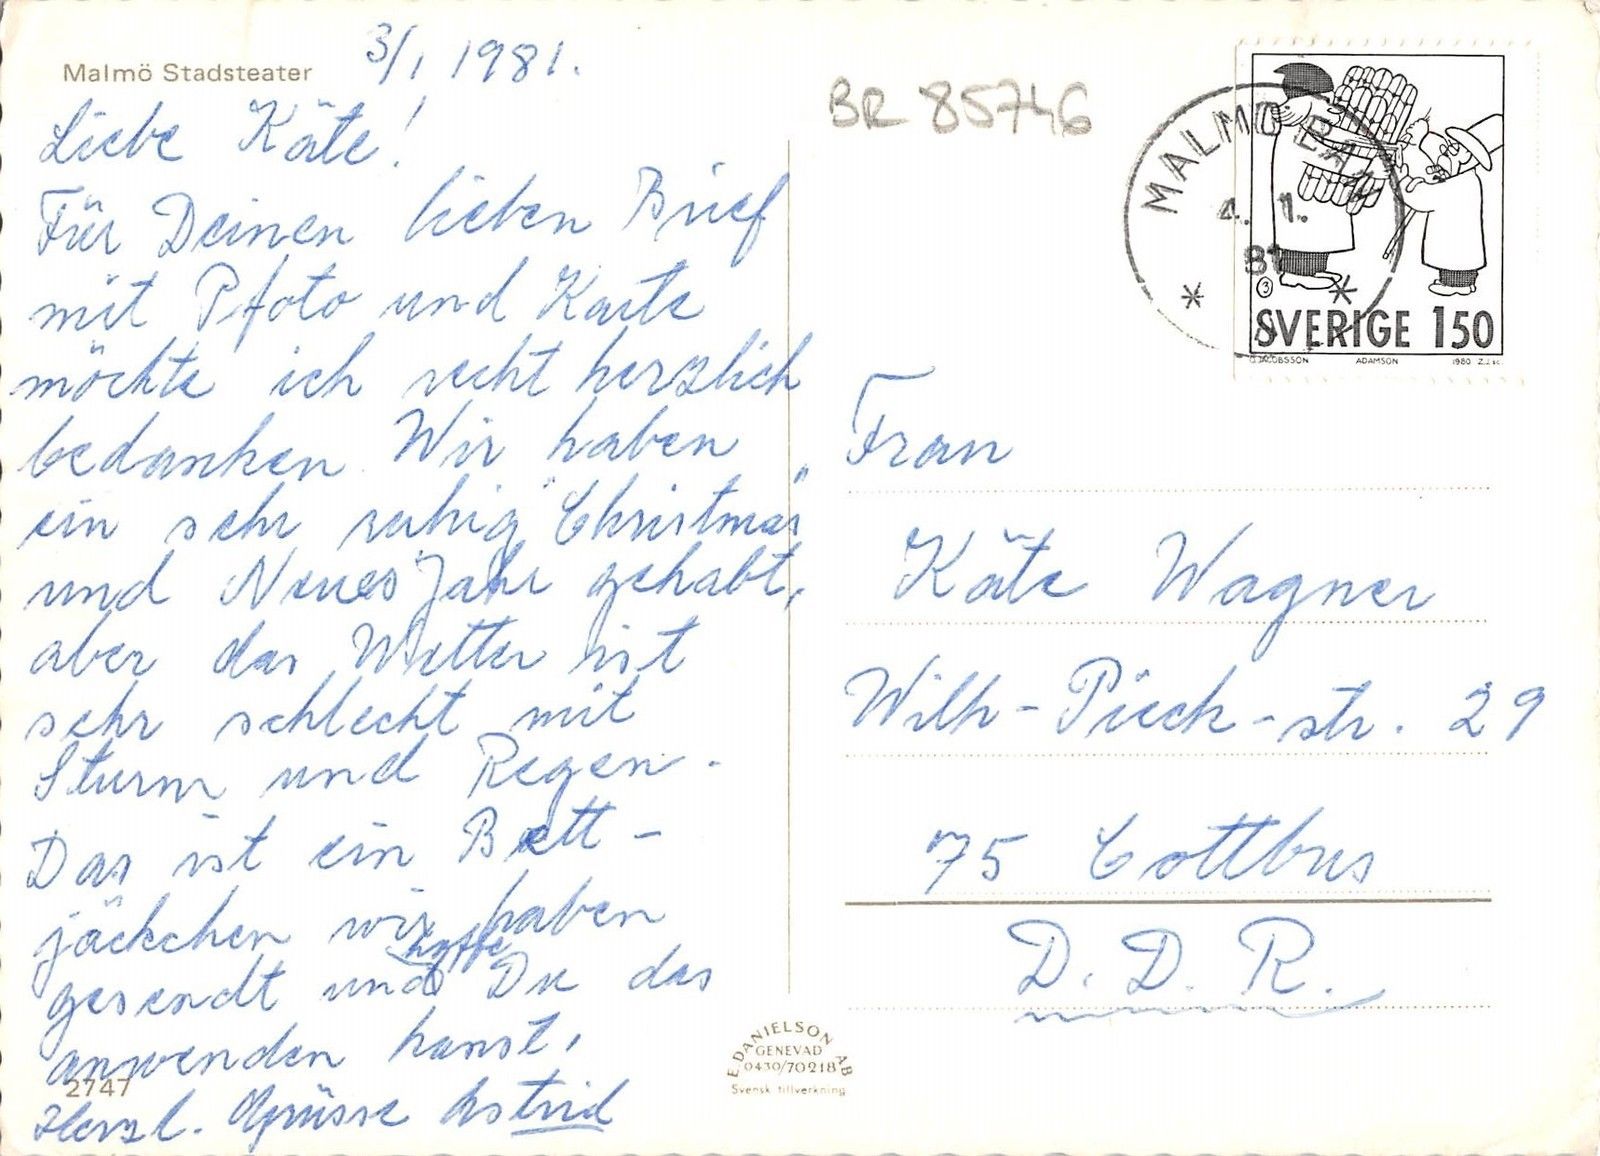 Malmö Stadsteater
3/1 1981.
Liebe Käte!
Für Deinen lieben Brief
mit Pfoto und Karte
möchte ich recht herzlich
bedanken. Wir haben
ein sehr ruhig "Christmas"
und Neues Jahr gehabt,
aber das Wetter ist
sehr schlecht mit
Sturm und Regen.
Das ist ein Bett-
jäckchen wir haben
gesendt und hoffe Du das
anwenden kanst.
Herzl. Grüsse Astrid
2747
BR 85746
MALMÖ BAN
4. 1.
81
3
SVERIGE 150
O. JACOBSSON ADAMSON 1980 Z.J. sc.
Frau
Käte Wagner
Wilh-Pieck-str. 29
75 Cottbus
D. D. R.
E. DANIELSON AB
GENEVAD
0430/70218
Svensk tillverkning